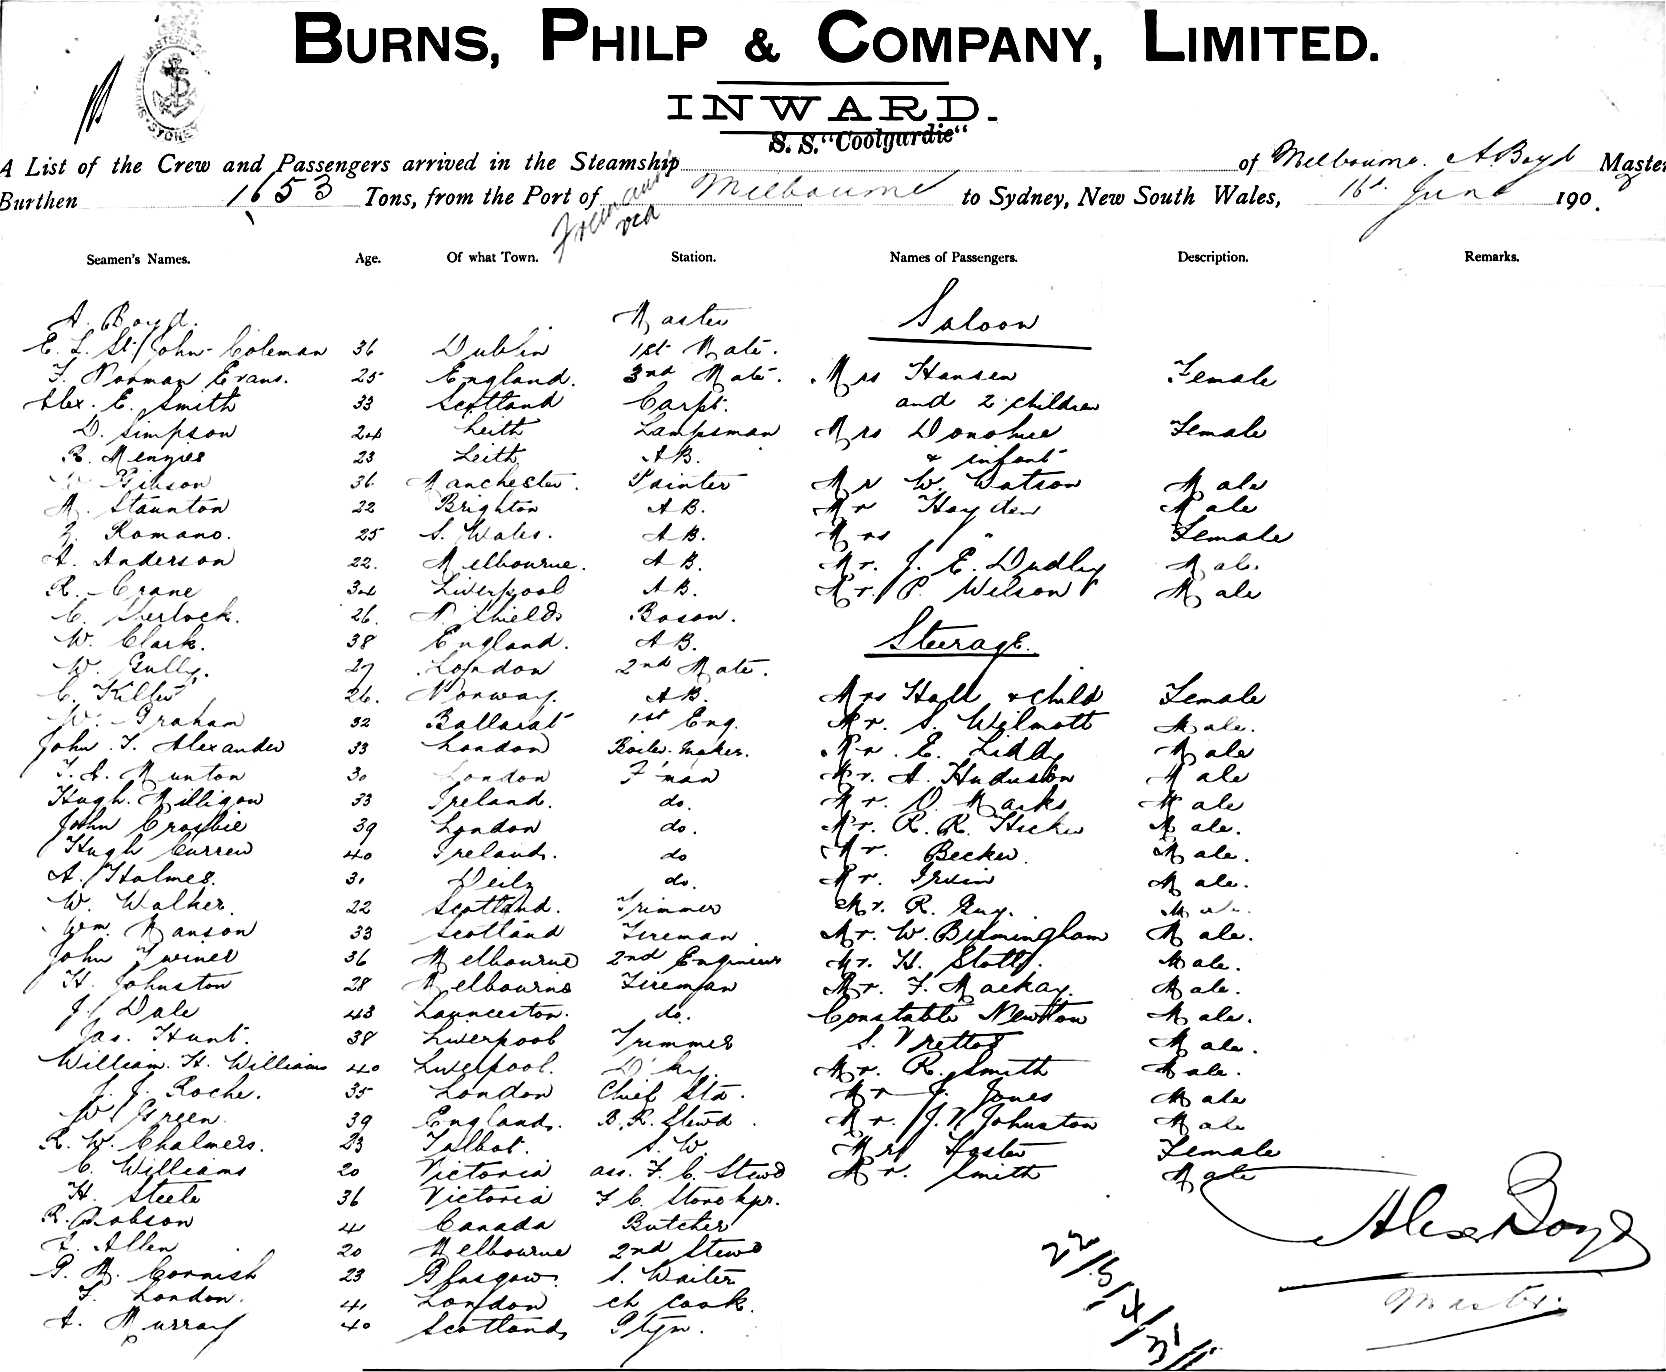 BURNS, PHILP & COMPANY, LIMITED.
INWARD.
S. S. "Coolgardie"
A List of the Crew and Passengers arrived in the Steamship of Melbourne. A. Boyd Master
Burthen 1653 Tons, from the Port of Melbourne to Sydney, New South Wales, 16th June 190 .
via
Seamen's Names. Age. Of what Town. Station. Names of Passengers. Description. Remarks.
A. Boyd. Master Saloon
E. L. St. John-Coleman 36 Dublin 1st Mate.
F. Norman Evans. 25 England. 3rd Mate. Mrs Hansen Female
Alex. E. Smith 33 Scotland Carpt. and 2 children
D. Simpson 24 Leith Lampsman Mrs Donohue Female
R. Menzies 23 Leith A B. & infant
W. Gibson 36 Manchester. Painter Mr W. Watson Male
M. Staunton 22 Brighton A B. Mr Hayden Male
Romano. 25 S. Wales. A B. Mrs " Female
A. Anderson 22. Melbourne. A B. Mr. J. E. Dudley Male.
R. Crane 34 Liverpool A B. Mr. P. Wilson Male
C. 26. N Shields Boson.
W. Clark. 38 England. A B. Steerage.
W. Gully. 27 London 2nd Mate.
C. 26. Norway. A B. Mrs Hall & child Female
W. Graham 32 Ballarat 1st Eng. Mr. S. Wilmott Male.
John. T. Alexander 33 London Boiler-maker. Mr. E. Liddy Male
T. A. Munton 30 London F'man Mr. A. Male
Hugh. Milligan 33 Ireland. do. Mr. D. Marks Male
John Crosbie 39 London do. Mr. R. R. Male.
Hugh Curren 40 Ireland. do Mr. Becker. Male.
A. Holmes. 31 do. Mr. Irvin Male.
W. Walker. 22 Scotland. Trimmer Mr. R. Guy. Male.
Wm. Manson 33 Scotland Fireman. Mr. W. Birmingham Male.
John Twinel 36 Melbourne 2nd Engineer Mr. H. Male.
H. Johnston 28 Melbourne Fireman Mr. F. Mackay. Male.
J. Dale 43 Launceston. do. Constable Newton Male.
Jas. Hunt. 38 Liverpool Trimmer S. Vrettos Male.
William. H. Williams 40 Liverpool. D'ky. Mr. R. Smith Male.
J. J. Roche. 35 London Chief Std. Mr J. Jones Male
W. Green. 39 England. B. R. Stewd. Mr. J. N Johnston Male
R. W. Chalmers. 23 Talbot. S. W. Mrs Foster Female
C. Williams 20 Victoria ass. F. C. Stewd Mr. Smith Male
H. Steele 36 Victoria F C. Storekpr.
R. Robson 41 Canada Butcher
F. Allen 20 Melbourne 2nd Stewd
P. M. Cornish 23 Glasgow. S. Waiter
F. London. 41 London ch Cook.
A. Murray 40 Scotland
Alex Boyd
Master.